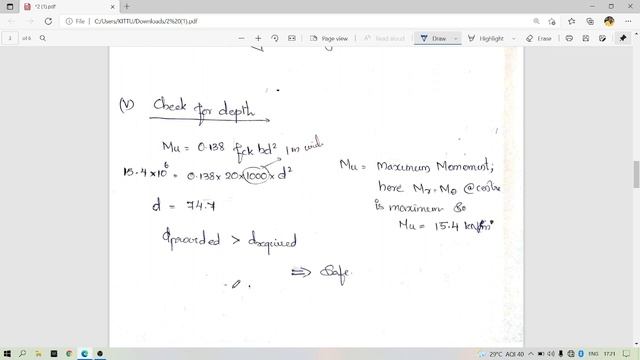 *2 (1).pdf
C:/Users/KITTU/Downloads/2%20(1).pdf
3 of 6
Page view
Read aloud
Draw
Highlight
Erase
(V) Check for depth
Mu = 0.138 fck bd²
1m wide
15.4×10⁶ = 0.138 × 20 × 1000 × d²
d = 74.7
dprovided > drequired
⇒ Safe.
Mu = Maximum Momement;
here Mr = Mθ @ centre
is maximum So
Mu = 15.4 kN
29°C AQI 40
ENG
17:21